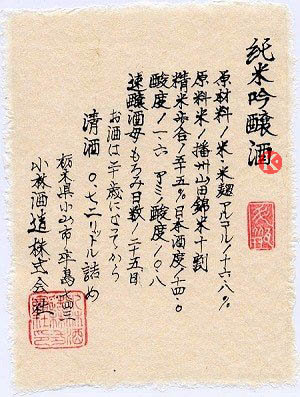 純米吟醸酒
原材料/米・米麹 アルコール/十六・八%
原料米/播州山田錦米十割
精米歩合/五十五% 日本酒度/十四・〇
酸度/一・六 アミノ酸度/〇・八
速醸酒母 もろみ日数/二十五日
お酒は二十歳になってから
清酒 〇・七二リットル詰め
栃木県小山市卒島
小林酒造株式会社